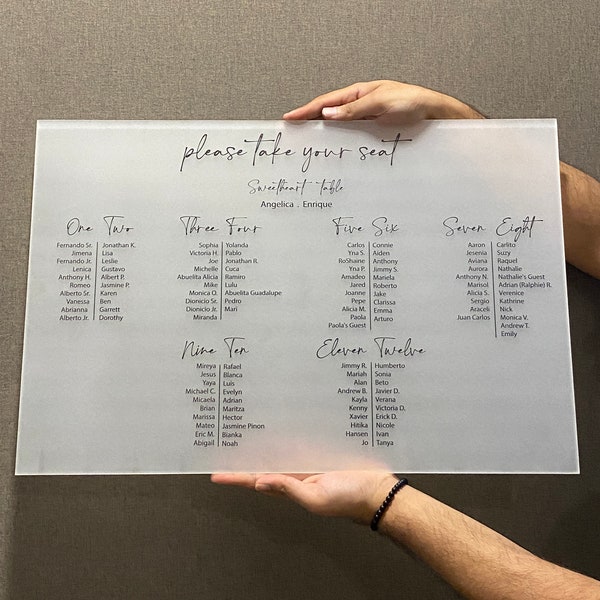 please take your seat
Sweetheart table
Angelica . Enrique
One
Fernando Sr.
Jimena
Fernando Jr.
Lenica
Anthony H.
Romeo
Alberto Sr.
Vanessa
Abrianna
Alberto Jr.
Two
Jonathan K.
Lisa
Leslie
Gustavo
Albert P.
Jasmine P.
Karen
Ben
Garrett
Dorothy
Three
Sophia
Victoria H.
Joe
Michelle
Abuelita Alicia
Mike
Monica O.
Dionicio Sr.
Dionicio Jr.
Miranda
Four
Yolanda
Pablo
Jonathan R.
Cuca
Ramiro
Lulu
Abuelita Guadalupe
Pedro
Mari
Five
Carlos
Yna S.
RoShaine
Yna P.
Amadeo
Jared
Joanne
Pepe
Alicia M.
Paola
Paola's Guest
Six
Connie
Aiden
Anthony
Jimmy S.
Mariela
Roberto
Jake
Clarissa
Emma
Arturo
Seven
Aaron
Jesenia
Aviana
Aurora
Anthony N.
Marisol
Alicia S.
Sergio
Araceli
Juan Carlos
Eight
Carlito
Suzy
Raquel
Nathalie
Nathalie's Guest
Adrian (Ralphie) R.
Verenice
Kathrine
Nick
Monica V.
Andrew T.
Emily
Nine
Mireya
Jesus
Yaya
Michael C.
Micaela
Brian
Marissa
Mateo
Eric M.
Abigail
Ten
Rafael
Blanca
Luis
Evelyn
Adrian
Maritza
Hector
Jasmine Pinon
Bianka
Noah
Eleven
Jimmy R.
Mariah
Alan
Andrew B.
Kayla
Kenny
Xavier
Hitika
Hansen
Jo
Twelve
Humberto
Sonia
Beto
Javier D.
Verana
Victoria D.
Erick D.
Nicole
Ivan
Tanya